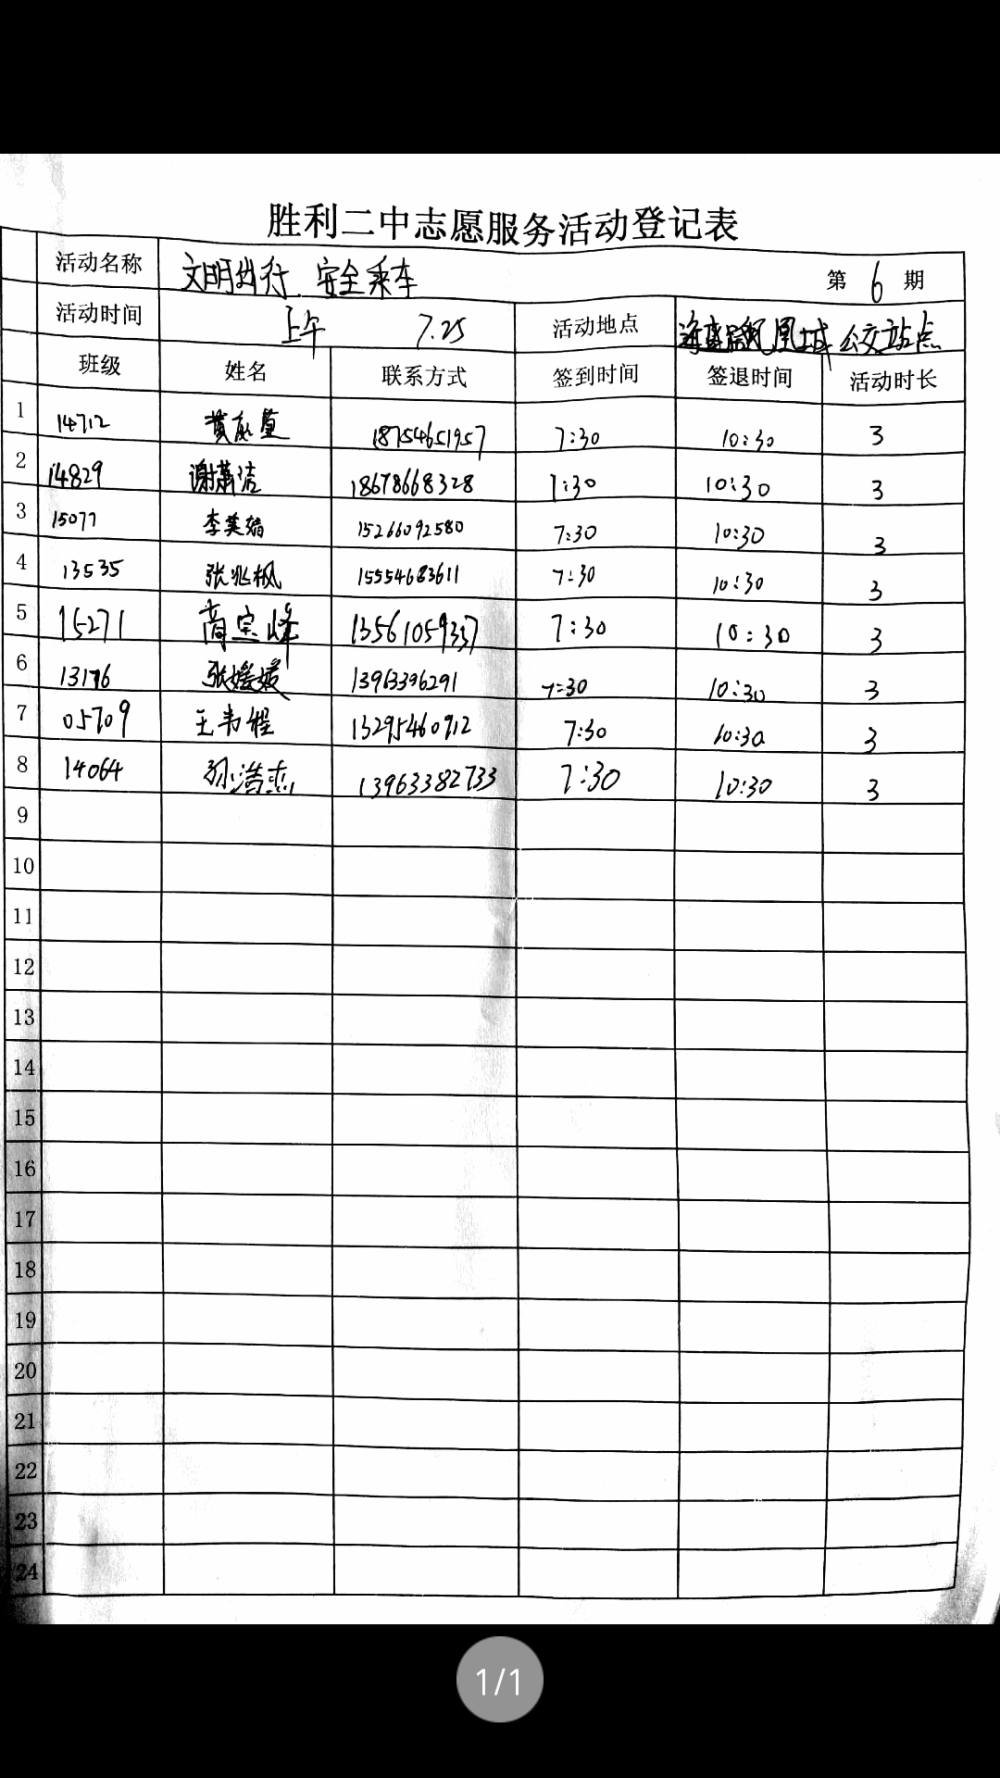 胜利二中志愿服务活动登记表
活动名称 文明出行 安全乘车 第 6 期
活动时间 上午 7.25 活动地点 凤凰城 公交站点
班级 姓名 联系方式 签到时间 签退时间 活动时长
1 14712 黄 18754651957 7:30 10:30 3
2 14829 谢萧洁 18678668328 7:30 10:30 3
3 15077 李美娟 15266092580 7:30 10:30 3
4 13535 张兆枫 15554683611 7:30 10:30 3
5 15271 商宗峰 13561059337 7:30 10:30 3
6 13176 张媛媛 13963396291 7:30 10:30 3
7 05709 王韦程 13295460912 7:30 10:30 3
8 14064 孙浩杰 13963382733 7:30 10:30 3
9
10
11
12
13
14
15
16
17
18
19
20
21
22
23
24
1/1